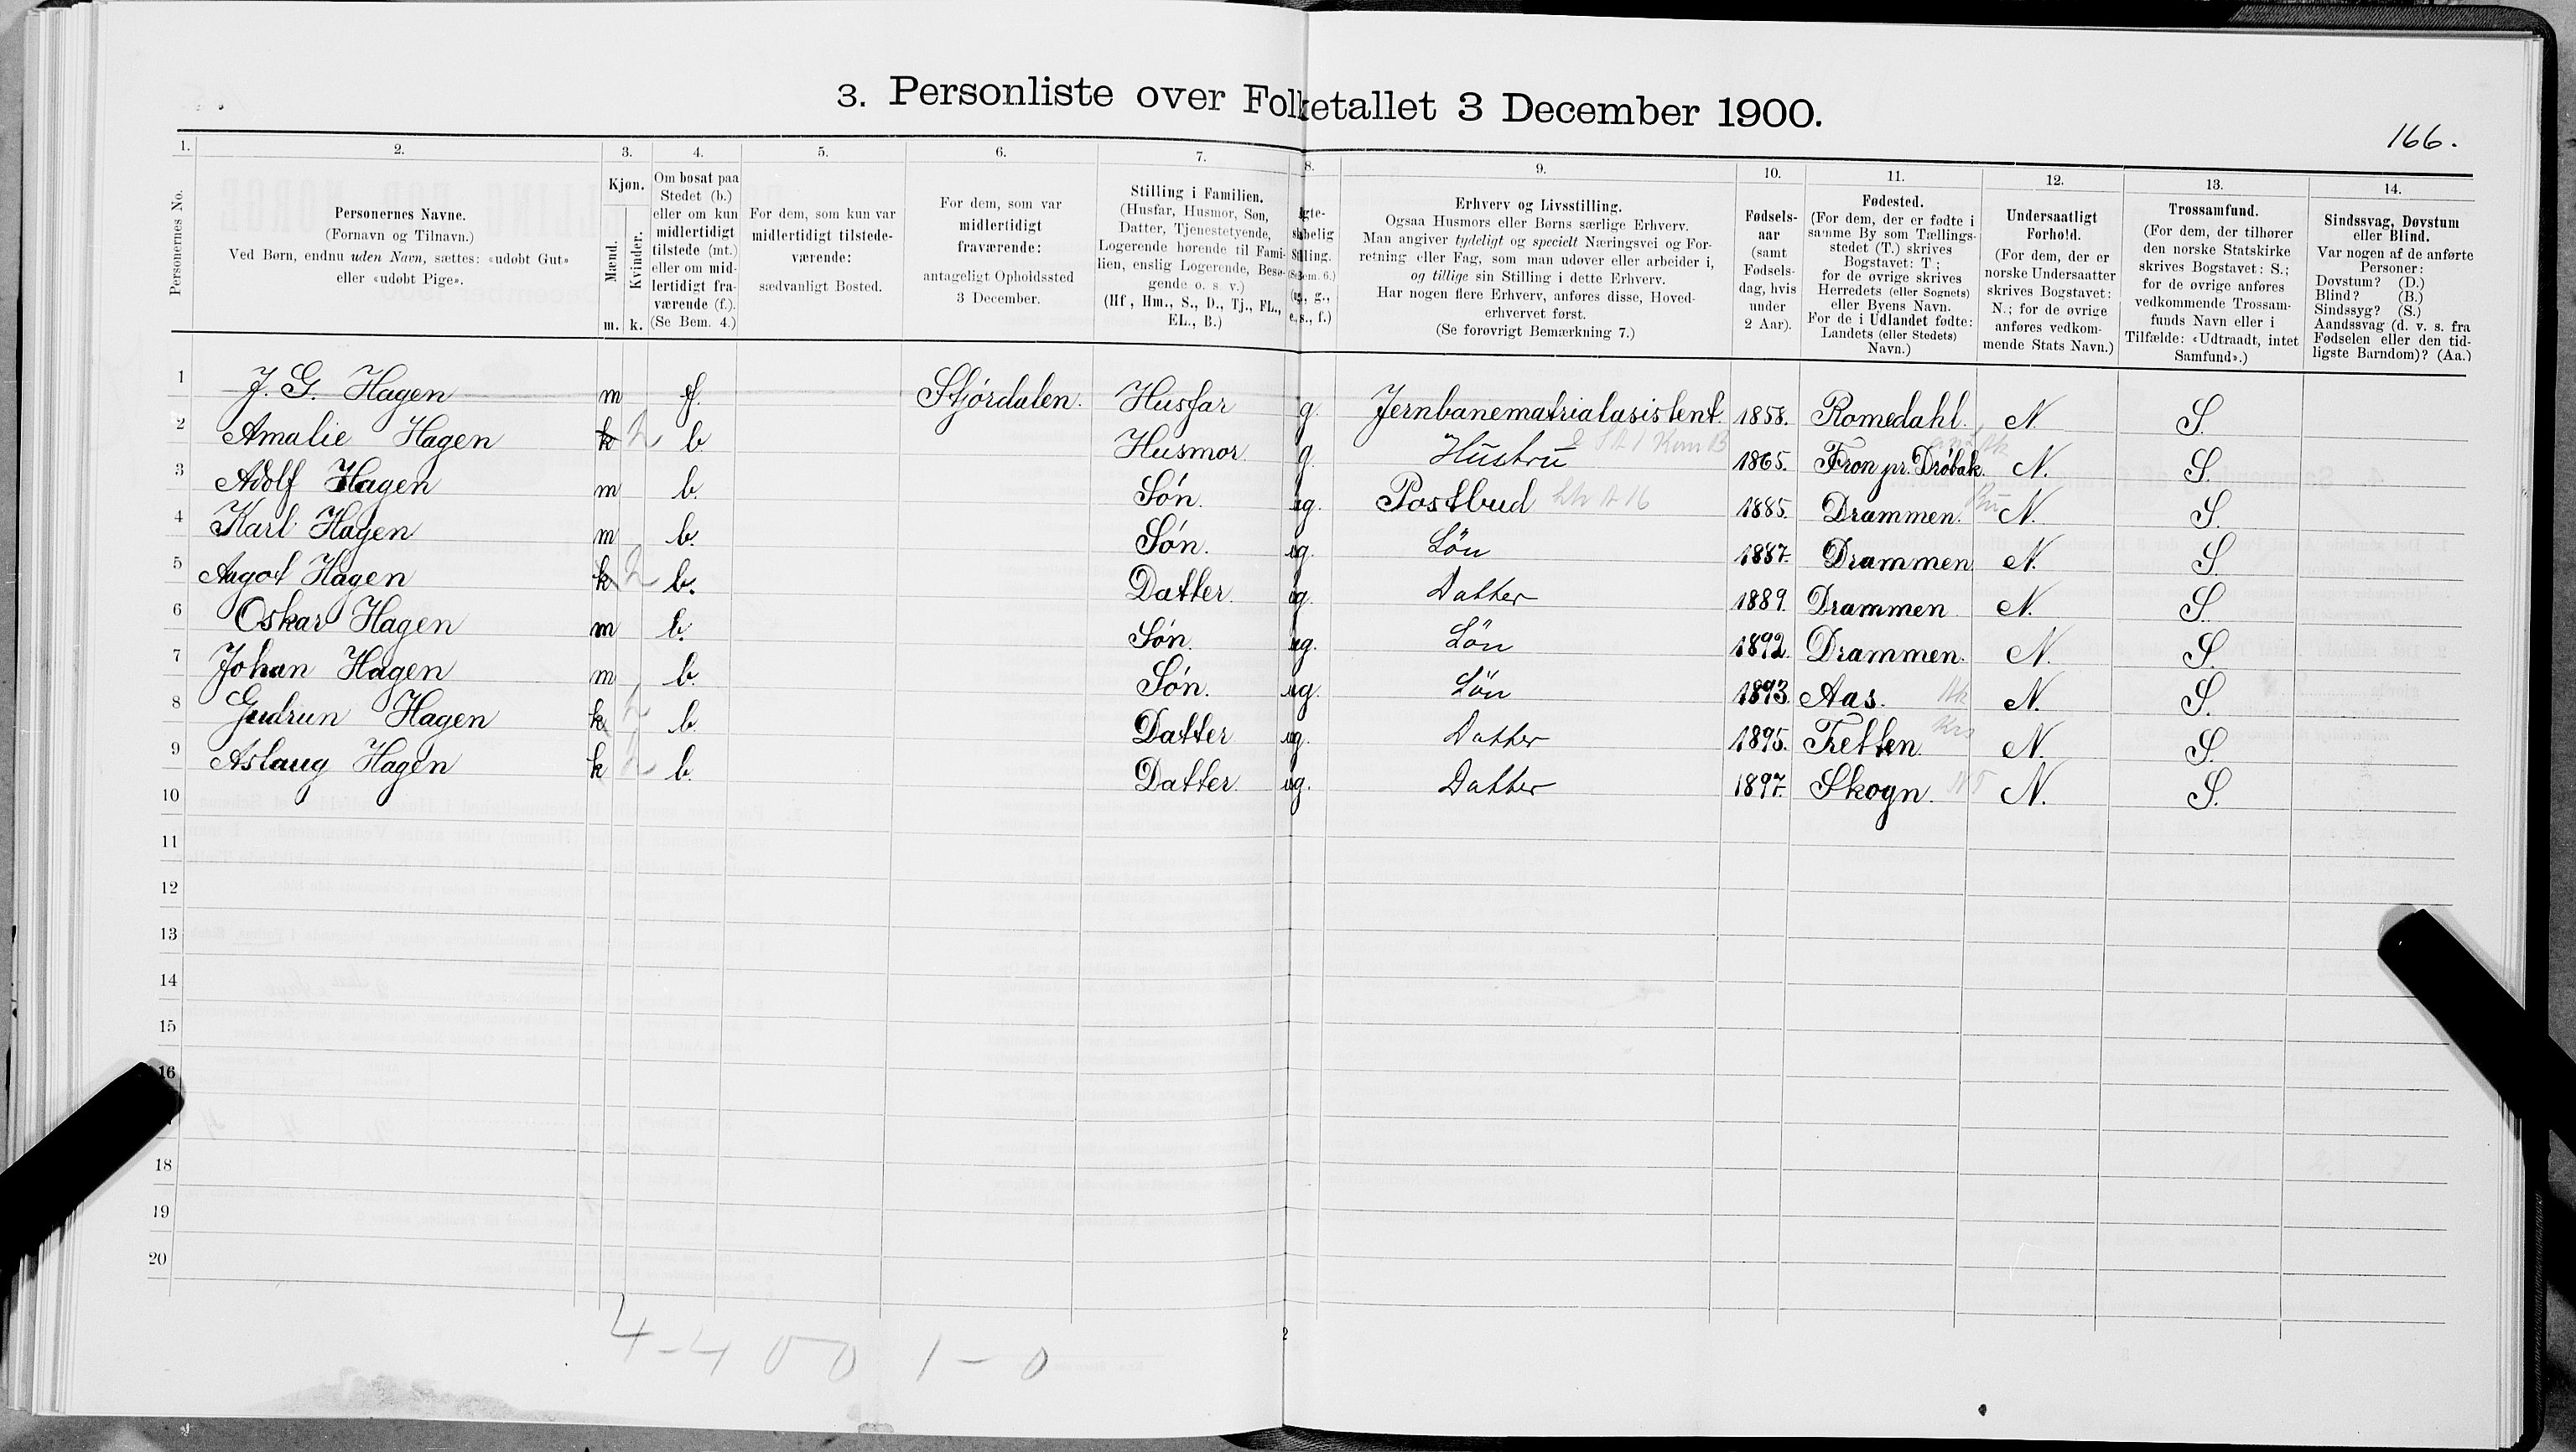 3. Personliste over Folketallet 3 December 1900.
166.
1. 2. 3. 4. 5. 6. 7. 8. 9. 10. 11. 12. 13. 14.
Personernes No.
Personernes Navne.
(Fornavn og Tilnavn.)
Ved Børn, endnu uden Navn, sættes: «udøbt Gut»
eller «udøbt Pige».
Kjøn.
Mænd.
Kvinder.
m. k.
Om bosat paa
Stedet (b.)
eller om kun
midlertidigt
tilstede (mt.)
eller om mid-
lertidigt fra-
værende (f.).
(Se Bem. 4.)
For dem, som kun var
midlertidigt tilstede-
værende:
sædvanligt Bosted.
For dem, som var
midlertidigt
fraværende:
antageligt Opholdssted
3 December.
Stilling i Familien.
(Husfar, Husmor, Søn,
Datter, Tjenestetyende,
Logerende hørende til Fami-
lien, enslig Logerende, Besø-
gende o. s. v.)
(Hf., Hm., S., D., Tj., FL.,
EL., B.)
gte-
skabelig
Stilling.
(Se Bem. 6.)
(ug., g.,
e., s., f.)
Erhverv og Livsstilling.
Ogsaa Husmors eller Børns særlige Erhverv.
Man angiver tydeligt og specielt Næringsvei og For-
retning eller Fag, som man udøver eller arbeider i,
og tillige sin Stilling i dette Erhverv.
Har nogen flere Erhverv, anføres disse, Hoved-
erhvervet først.
(Se forøvrigt Bemærkning 7.)
Fødsels-
aar
(samt
Fødsels-
dag, hvis
under
2 Aar).
Fødested.
(For dem, der er fødte i
samme By som Tællings-
stedet (T.) skrives
Bogstavet: T;
for de øvrige skrives
Herredets (eller Sognets)
eller Byens Navn.
For de i Udlandet fødte:
Landets (eller Stedets)
Navn.)
Undersaatligt
Forhold.
(For dem, der er
norske Undersaatter
skrives Bogstavet:
N.; for de øvrige
anføres vedkom-
mende Stats Navn.)
Trossamfund.
(For dem, der tilhører
den norske Statskirke
skrives Bogstavet: S.;
for de øvrige anføres
vedkommende Trossam-
funds Navn eller i
Tilfælde: «Udtraadt, intet
Samfund».)
Sindssvag, Døvstum
eller Blind.
Var nogen af de anførte
Personer:
Døvstum? (D.)
Blind? (B.)
Sindssyg? (S.)
Aandssvag (d. v. s. fra
Fødselen eller den tid-
ligste Barndom)? (Aa.)
1 J. G. Hagen m f. Stjørdalen. Husfar g. Jernbanematrialasistent. 1858. Romedahl. N. S.
2 Amalie Hagen k b. Husmor g. Hustru 1865. Fron pr. Drøbak. N. S.
3 Adolf Hagen m b. Søn. ug. Postbud 1885. Drammen. Bu N. S.
4 Karl Hagen m b. Søn. ug. Søn 1887. Drammen N. S.
5 Aagot Hagen k b. Datter. ug. Datter 1889. Drammen N. S.
6 Oskar Hagen m b. Søn. ug. Søn 1892. Drammen. N. S.
7 Johan Hagen m b. Søn. ug. Søn 1893. Aas. Ak N. S.
8 Gudrun Hagen k b. Datter ug. Datter 1895. Tretten. Kris N. S.
9 Aslaug Hagen k b. Datter. ug. Datter 1897. Skogn. NT N. S.
10
11
12
13
14
15
16
18
19
20
4-4 0 0 1-0
2